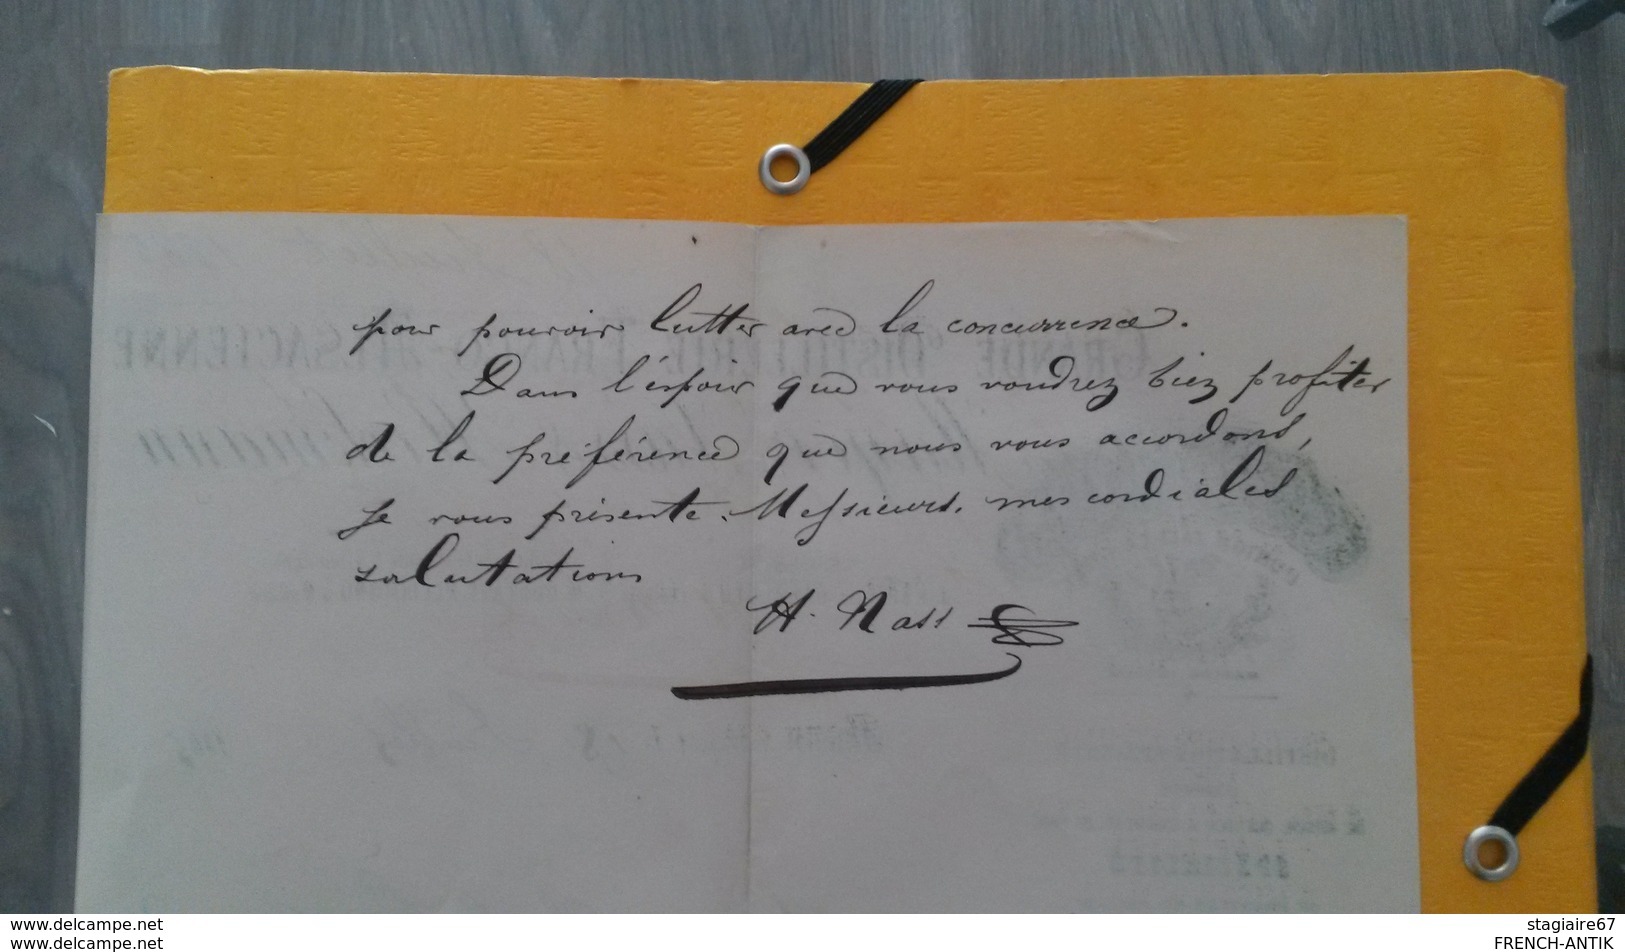 pour pouvoir lutter avec la concurrence.
Dans l'éspoir que vous voudrez biez profiter
de la préférence que nous vous accordons,
je vous présente, Messieurs, mes cordiales
salutations
H. Nass
GRANDE DISTILLERIE FRANCO-ALSACIENNE
www.delcampe.net
www.delcampe.net
stagiaire67
FRENCH-ANTIK